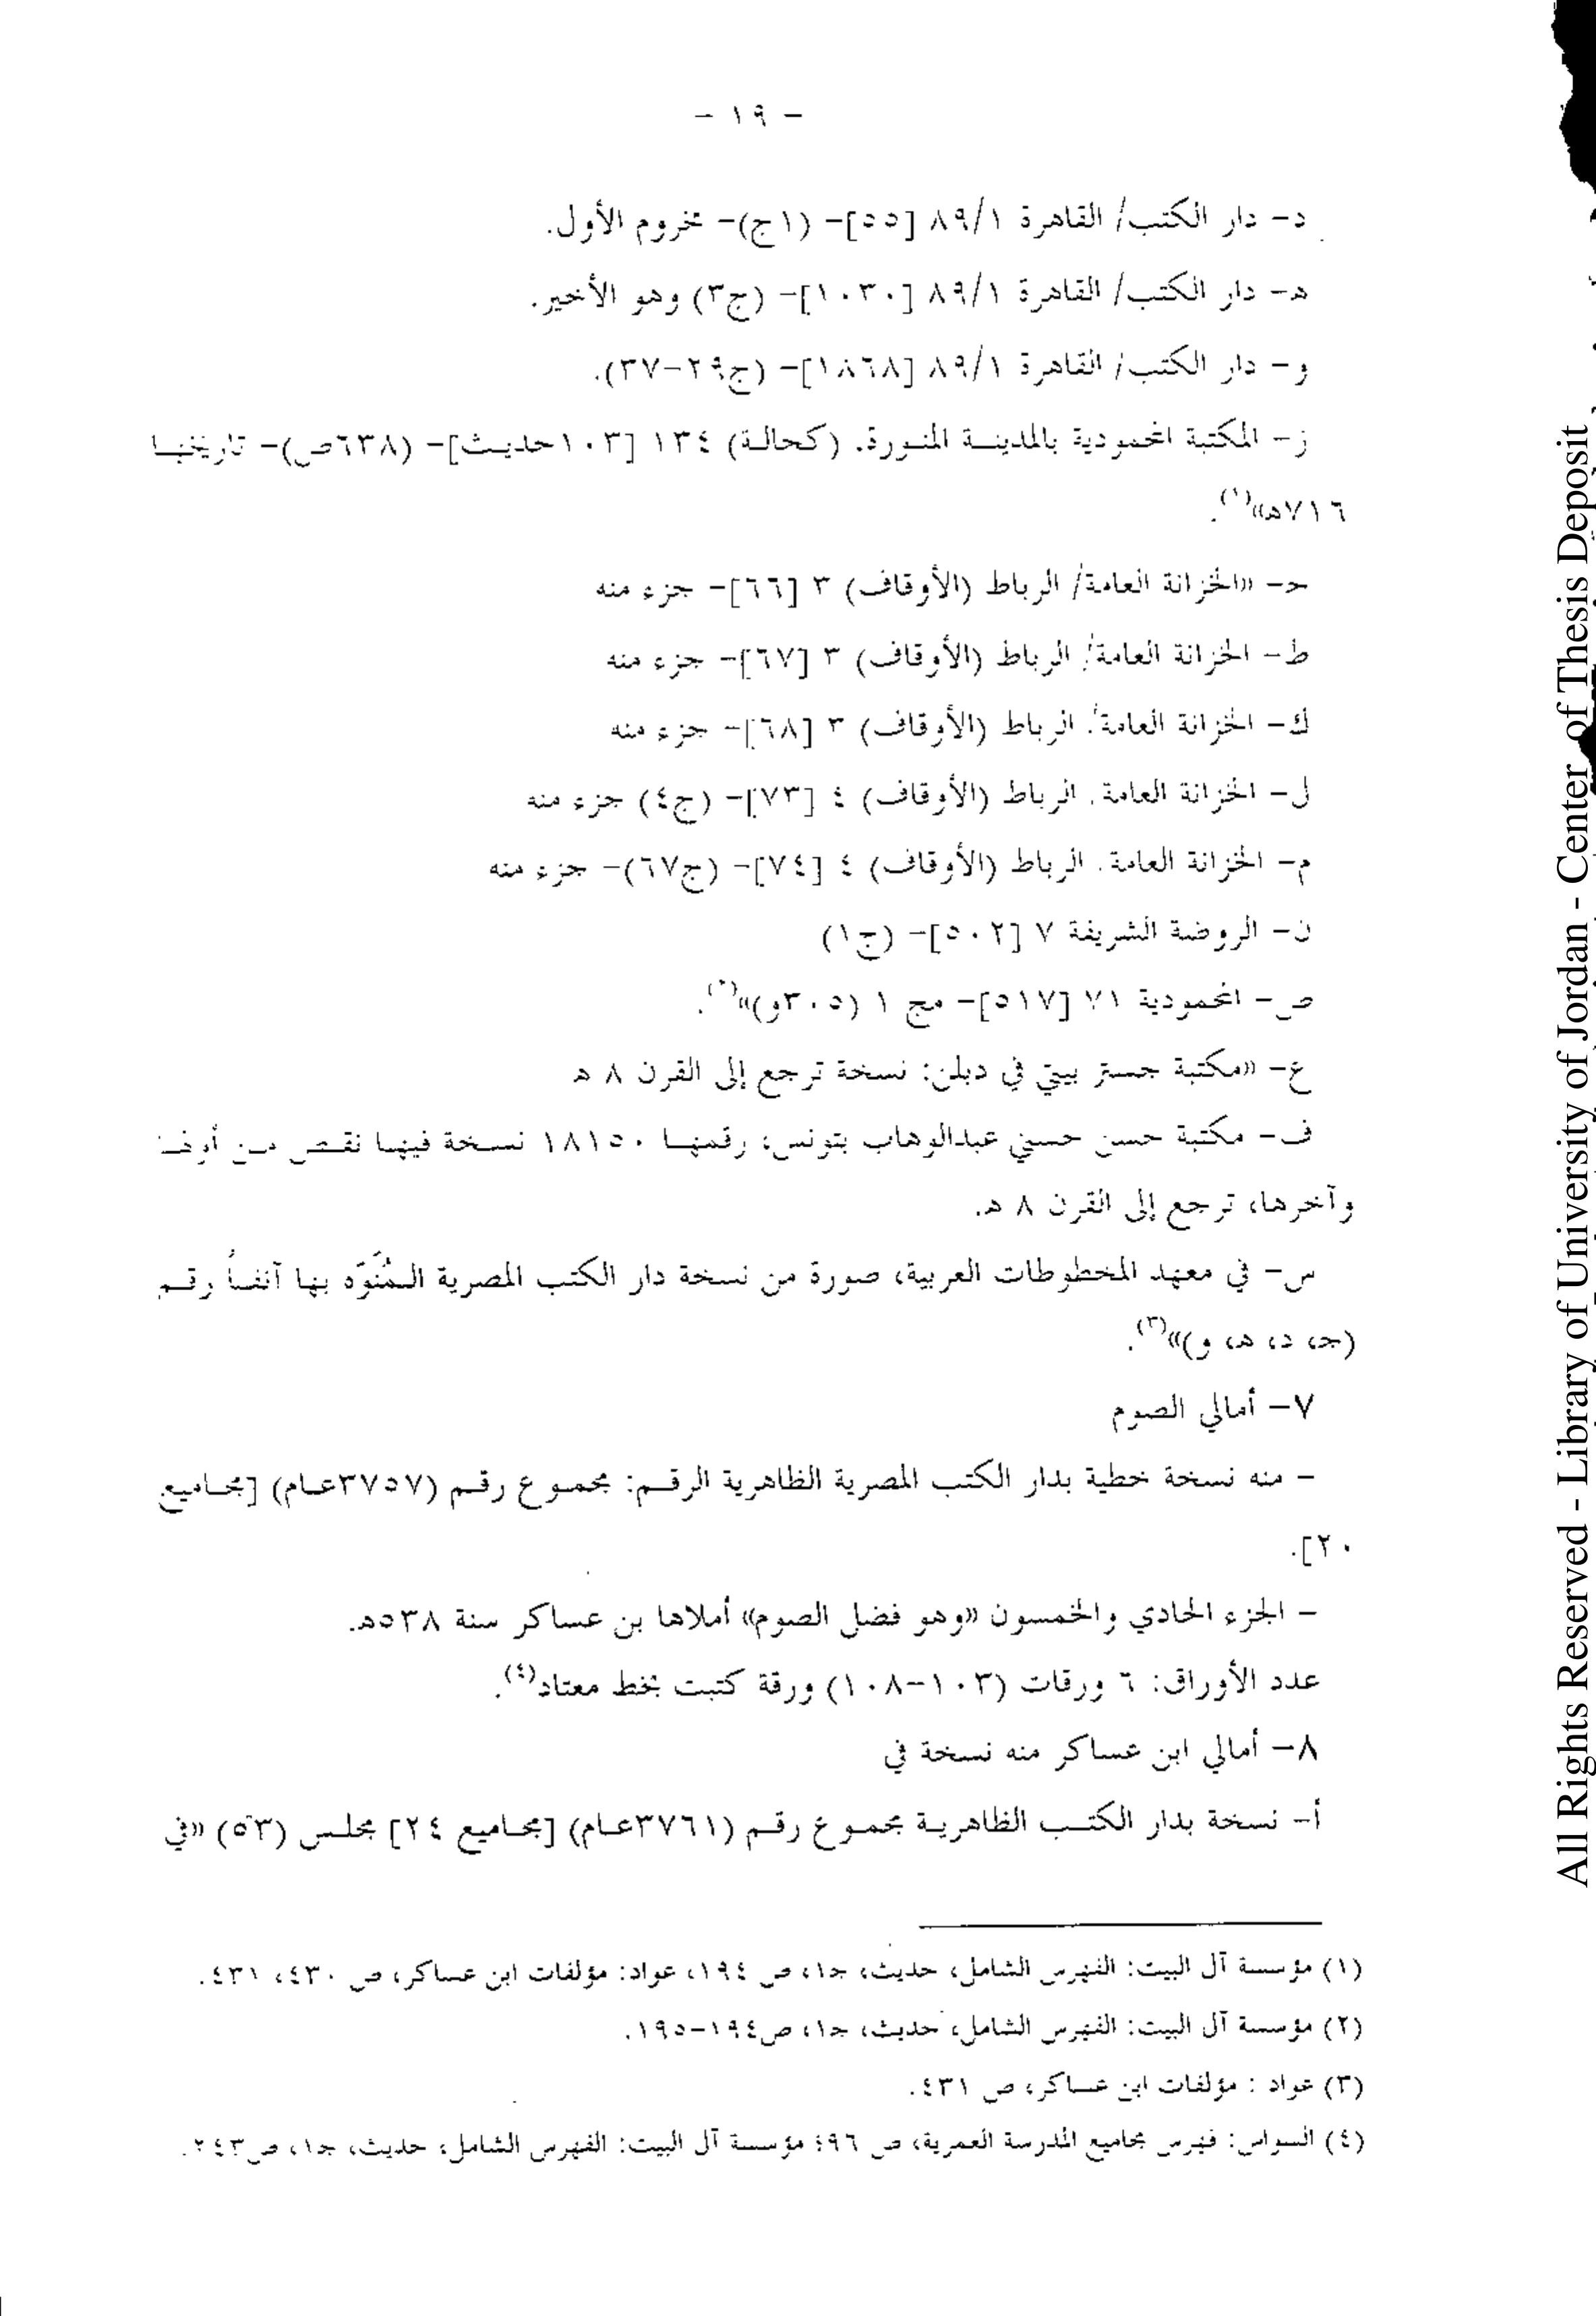 - ١٩ -
د- دار الكتب/ القاهرة ٨٩/١ [٥٥]- (١ج)- مخروم الأول.
هـ- دار الكتب/ القاهرة ٨٩/١ [١٠٣٠]- (ج٣) وهو الأخير.
و- دار الكتب/ القاهرة ٨٩/١ [١٨٦٨]- (ج٢٩-٣٧).
ز- المكتبة المحمودية بالمدينة المنورة. (كحالة) ١٣٤ [١٠٣حديث]- (٦٣٨ص)- تاريخها
٧١٦هـ»(١).
حـ- «الخزانة العامة/ الرباط (الأوقاف) ٣ [٦٦]- جزء منه
ط- الخزانة العامة/ الرباط (الأوقاف) ٣ [٦٧]- جزء منه
ك- الخزانة العامة/ الرباط (الأوقاف) ٣ [٦٨]- جزء منه
ل- الخزانة العامة. الرباط (الأوقاف) ٤ [٧٣]- (ج٤) جزء منه
م- الخزانة العامة. الرباط (الأوقاف) ٤ [٧٤]- (ج٦٧)- جزء منه
ن- الروضة الشريفة ٧ [٥٠٢]- (ج١)
ص- المحمودية ٧١ [٥١٧]- مج ١ (٣٠٥و)»(٢).
ع- «مكتبة جستر بيتي في دبلن: نسخة ترجع إلى القرن ٨ هـ
ف- مكتبة حسن حسني عبدالوهاب بتونس، رقمها ١٨١٥٠ نسخة فيها نقص من أولها
وآخرها، ترجع إلى القرن ٨ هـ.
س- في معهد المخطوطات العربية، صورة من نسخة دار الكتب المصرية المُنَوّه بها آنفاً رقم
(جـ، د، هـ، و)»(٣).
٧- أمالي الصوم
- منه نسخة خطية بدار الكتب المصرية الظاهرية الرقم: مجموع رقم (٣٧٥٧عام) [مجاميع
٢٠].
- الجزء الحادي والخمسون «وهو فضل الصوم» أملاها بن عساكر سنة ٥٣٨هـ.
عدد الأوراق: ٦ ورقات (١٠٣-١٠٨) ورقة كتبت بخط معتاد(٤).
٨- أمالي ابن عساكر منه نسخة في
أ- نسخة بدار الكتب الظاهرية مجموع رقم (٣٧٦١عام) [مجاميع ٢٤] مجلس (٥٣) «في
(١) مؤسسة آل البيت: الفهرس الشامل، حديث، جـ١، ص ١٩٤، عواد: مؤلفات ابن عساكر، ص ٤٣٠، ٤٣١.
(٢) مؤسسة آل البيت: الفهرس الشامل، حديث، جـ١، ص١٩٤-١٩٥.
(٣) عواد : مؤلفات ابن عساكر، ص ٤٣١.
(٤) السواس: فهرس مجاميع المدرسة العمرية، ص ٩٦؛ مؤسسة آل البيت: الفهرس الشامل، حديث، جـ١، ص٢٤٣.
All Rights Reserved - Library of University of Jordan - Center of Thesis Deposit